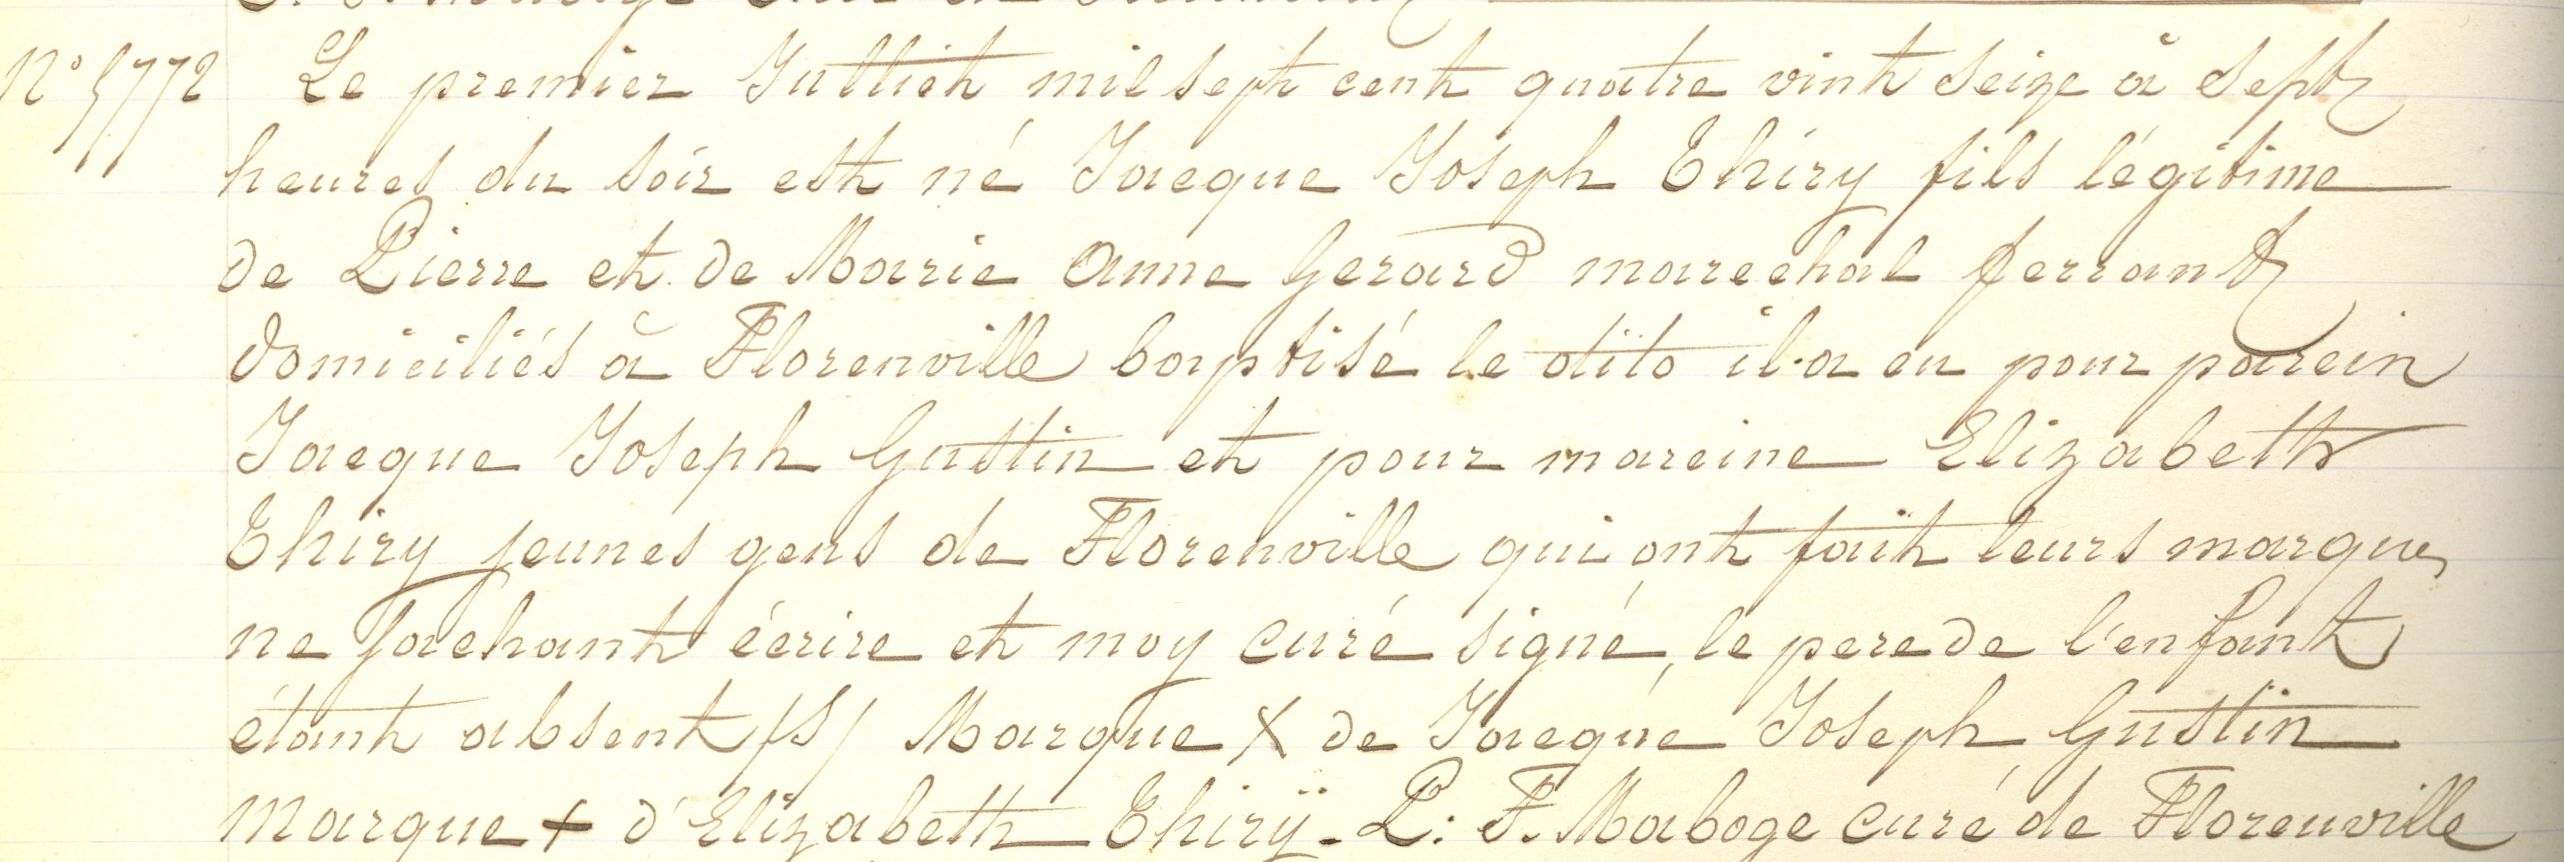 N° 5772 Le premier Julliet mil sept cent quatre vint seize à sept
heures du soir est né Jacque Joseph Thiry fils légitime
de Pierre et de Marie Anne Gerard marechal ferrant
domiciliés à Florenville baptisé le dito il a eu pour parein
Jacque Joseph Gustin et pour mareine Elizabeth
Thiry jeunes gens de Florenville qui ont fait leurs marques
ne sachant écrire et moy curé signé, le pere de l'enfant
étant absent /S/ Marque X de Jacque Joseph Gustin
Marque + d'Elizabeth Thirÿ - P: F. Maboge curé de Florenville